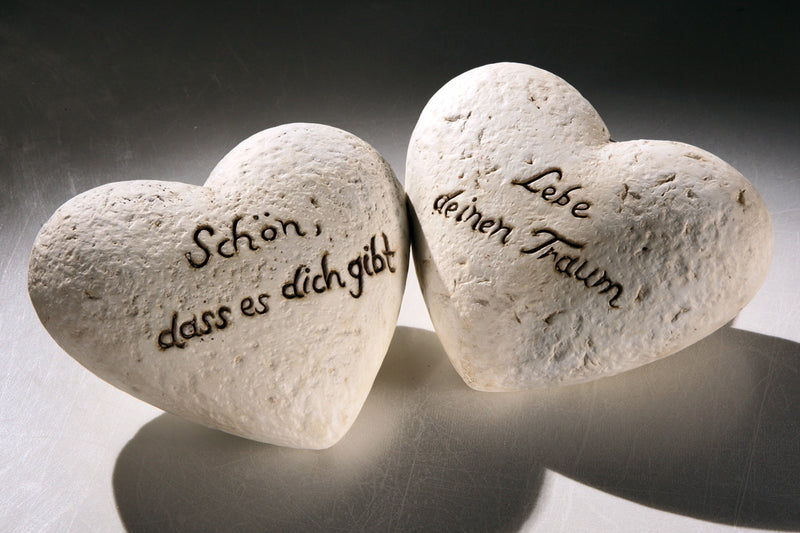 Schön,
dass es dich gibt
Lebe
deinen Traum